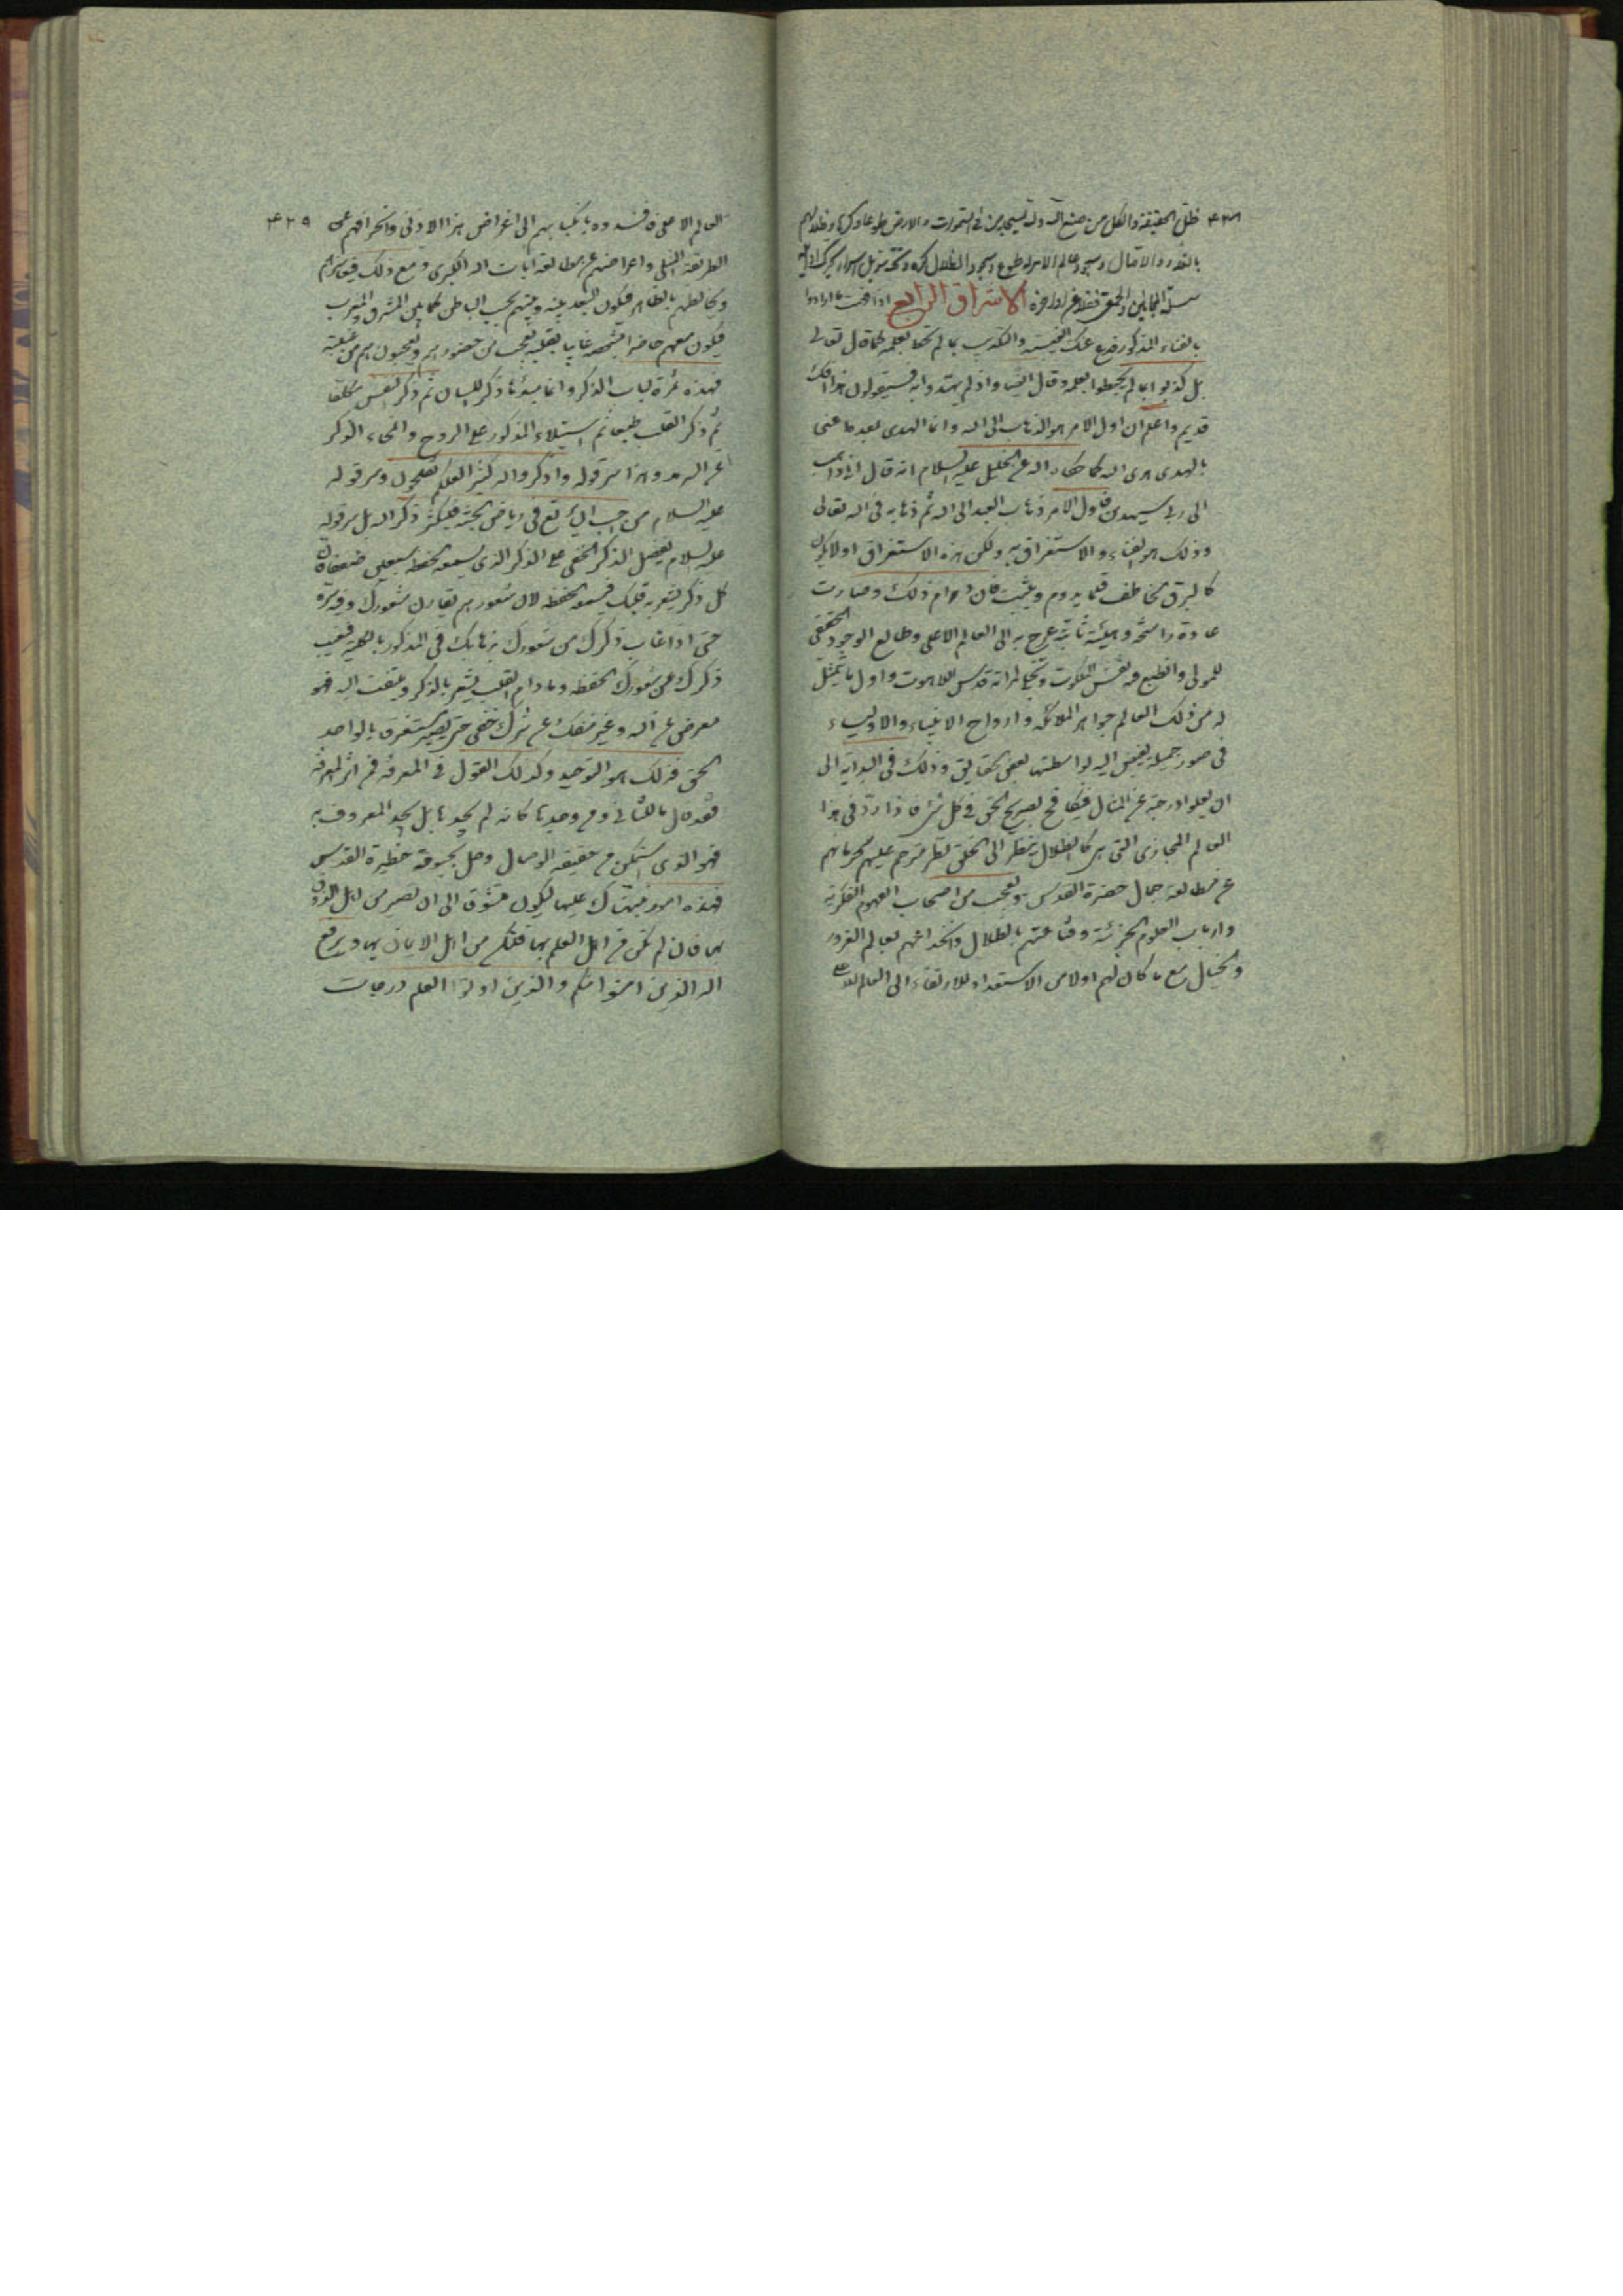 ظل الحقيقة والكل من صنع الله ولله يسجد من في السموات والارض طوعا وكرها وظلالهم
بالغدو والآصال وسجود عالم الامر له طوع وسجود الظلال كره وتحته
الاشراق الرابع
بالفناء المذكور فدع عنك والتكذيب بما لم تحط بعلمه كما قال تعالى
بل كذبوا بما لم يحيطوا بعلمه وقال ايضا واذ لم يهتدوا به فسيقولون هذا افك
قديم واعلم ان اول الامر هو الذهاب الى الله وانما الهدى بعده اعنى
بالهدى هدى الله كما حكاه الله عن الخليل عليه السلام انه قال انى ذاهب
الى ربى سيهدين فاول الامر ذهاب العبد الى الله ثم ذهابه فى الله تعالى
وذلك هو الفناء والاستغراق به ولكن هذه الاستغراق اولا يكون
كالبرق الخاطف قلما يدوم ويثبت فان دام ذلك وصارت
عادة راسخة وهيئة ثابتة عرج به الى العالم الاعلى وطالع الوجود الحقيقى
للمولى وانطبع فيه نقش الملكوت وتجلى لمراته قدس اللاهوت واول ما يتمثل
له من ذلك العالم جواهر الملائكة وارواح الانبياء والاولياء
فى صور جميلة يفيض اليه بواسطتها بعض الحقايق وذلك فى البداية الى
ان يعلو درجته عن المثال فيكافح بصريح الحق فى كل شئ فاذا رد فى هذا
العالم المجازى التى هى كالظلال ينظر الى الخلق نظر مترحم عليهم لحرمانهم
عن مطالعة جمال حضرة القدس ويعجب من اصحاب الفهوم الفكرية
وارباب العلوم الجزئية وقناعتهم بالظلال وانخداعهم بعالم الغرور
والخيال مع ما كان لهم اولا من الاستعداد للارتقاء الى العالم
٤٢٩ العالم الاعلى فافسدوه بانكبابهم الى اغراض هذا الادنى وانحرافهم عن
الطريقة المثلى واعراضهم عن مطالعة آيات الله الكبرى ومع ذلك
ويخالطهم بالظاهر فيكون البعد بينه وبينهم بحسب الباطن كما بين المشرق والمغرب
فيكون معهم حاضرا بشخصه غايبا بقلبه يعجب من حضورهم ويعجبون هم من غيبته
فهذه ثمرة لباب الذكر وانما مبدئها ذكر اللسان ثم ذكر النفس تكلفا
ثم ذكر القلب طبعا ثم استيلاء المذكور على الروح وانمحاء الذكر
وهذا سر قوله واذكروا الله كثيرا لعلكم تفلحون وسر قوله
عليه السلام من احب ان يرتع فى رياض الجنة فليكثر ذكر الله بل سر قوله
عليه السلام يفضل الذكر الخفى على الذكر الذى يسمعه الحفظة سبعين ضعفا فان
كل ذكر يشعر به قلبك فيسمعه الحفظة لان شعورهم يقارن شعورك وفيه سر
حتى اذا غاب ذكرك من شعورك بذهابك فى المذكور بالكلية فيغيب
ذكرك عن شعورك الحفظة وما دام القلب يشعر بالذكر ويلتفت اليه فهو
معرض عن الله وغير منفك عن شرك خفى حتى يصير مستغرقا بالواحد
الحق فذلك هو التوحيد وكذلك القول فى المعرفة فمن آثر المعرفة
فقد قال بالثانى ومن وجدها كانه لم يجدها بل يجد المعروف به
فهو الذى استمكن من حقيقة الوصال وحل بحبوحة حظيرة القدس
فهذه امور نبهناك عليها ليكون تشوق الى ان تصير من اهل الذوق
بها فان لم تكن من اهل العلم بها فلتكن من اهل الايمان بها ويرفع
الله الذين آمنوا منكم والذين اوتوا العلم درجات